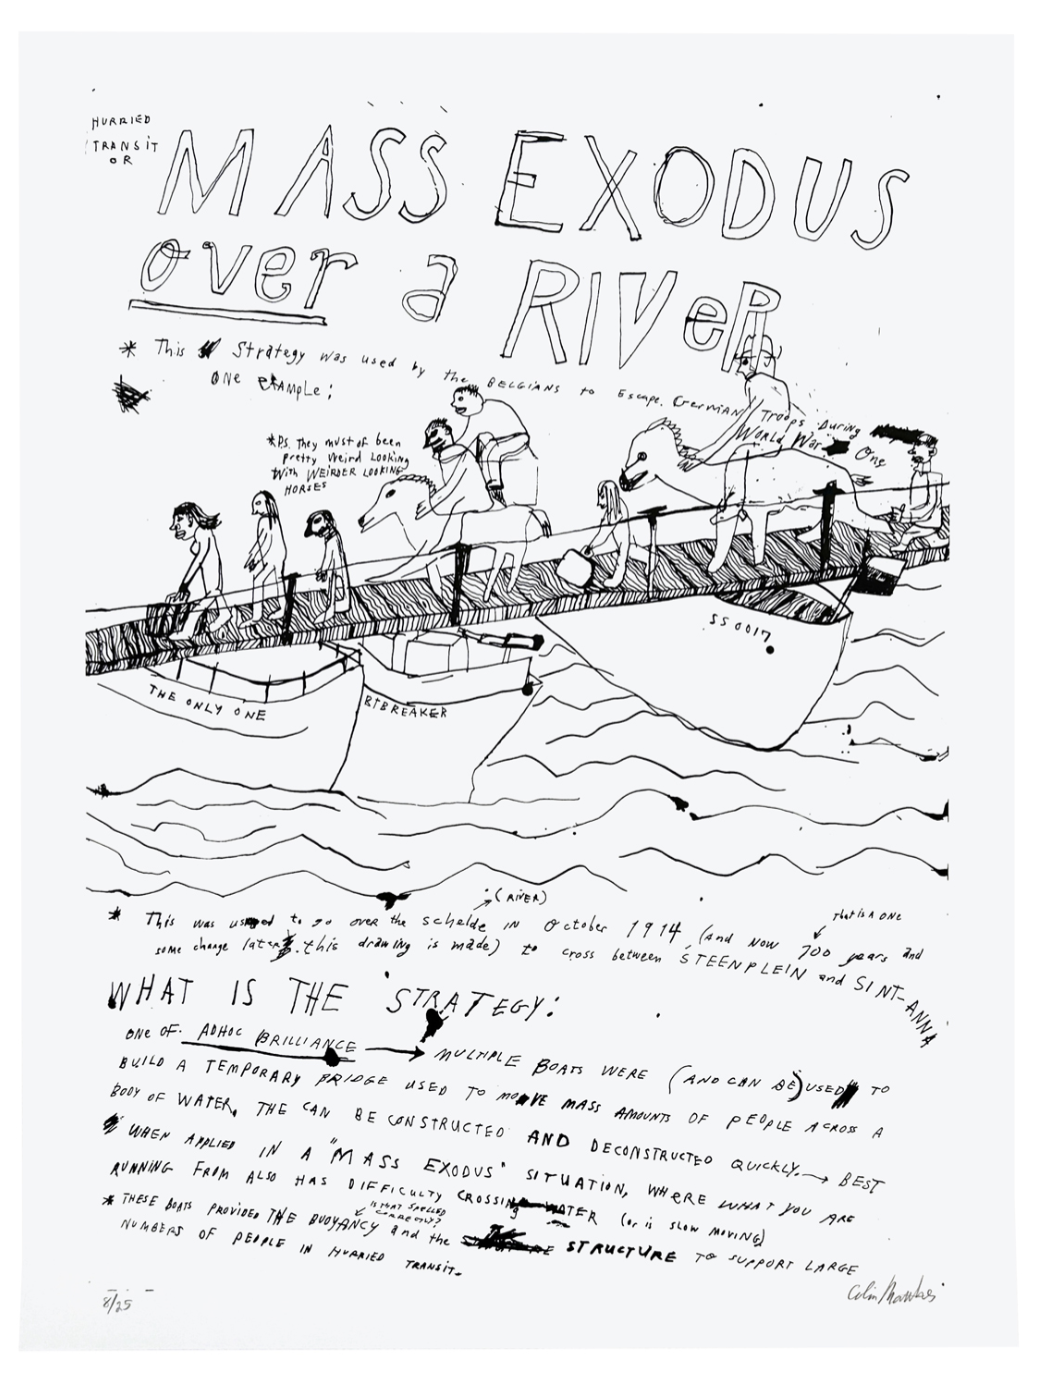 HURRIED
TRANSIT
OR
MASS EXODUS
over a RIVeR
* This Strategy was used by the BELGIANS to Escape German Troops During
World War One
ONE EXAMPLE:
*P.S. They must of been
pretty weird LOOKING
With WEIRDER LOOKING
HORSES
SS 0017
THE ONLY ONE
BTBREAKER
(RIVER)
* This was used to go over the Schelde IN October 1914 (and now 700 years and
That is A ONE
some change later this drawing is made) to cross between STEENPLEIN and SINT-ANNA
WHAT IS THE STRATEGY:
ONE OF ADHOC BRILLIANCE → MULTIPLE BOATS WERE (AND CAN BE) USED TO
BUILD A TEMPORARY BRIDGE USED TO MOVE MASS AMOUNTS OF PEOPLE ACROSS A
BODY OF WATER, THE CAN BE CONSTRUCTED AND DECONSTRUCTED QUICKLY. → BEST
WHEN APPLIED IN A "MASS EXODUS" SITUATION, WHERE WHAT YOU ARE
RUNNING FROM ALSO HAS DIFFICULTY CROSSING WATER (or is SLOW MOVING)
IS THAT SPELLED
CORRECTLY?
* THESE BOATS PROVIDED THE BUOYANCY and the STRUCTURE TO SUPPORT LARGE
NUMBERS OF PEOPLE IN HURRIED TRANSIT.
8/25